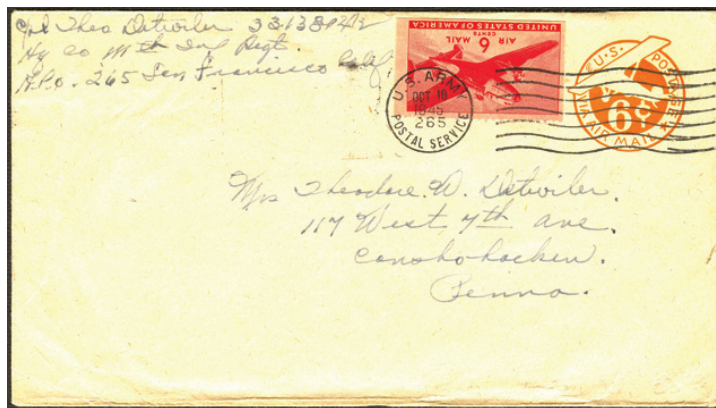 Cpl Theo Detwiler
Hq Co 111th Inf Regt.
A.P.O. 265 San Francisco Calif
UNITED STATES OF AMERICA
6 CENTS
AIR MAIL
U.S. ARMY
OCT 18
1945
265
POSTAL SERVICE
U.S. POSTAGE
6
VIA AIR MAIL
Mrs Theodore. W. Detwiler.
117 West 7th ave.
Conshohocken.
Penna.